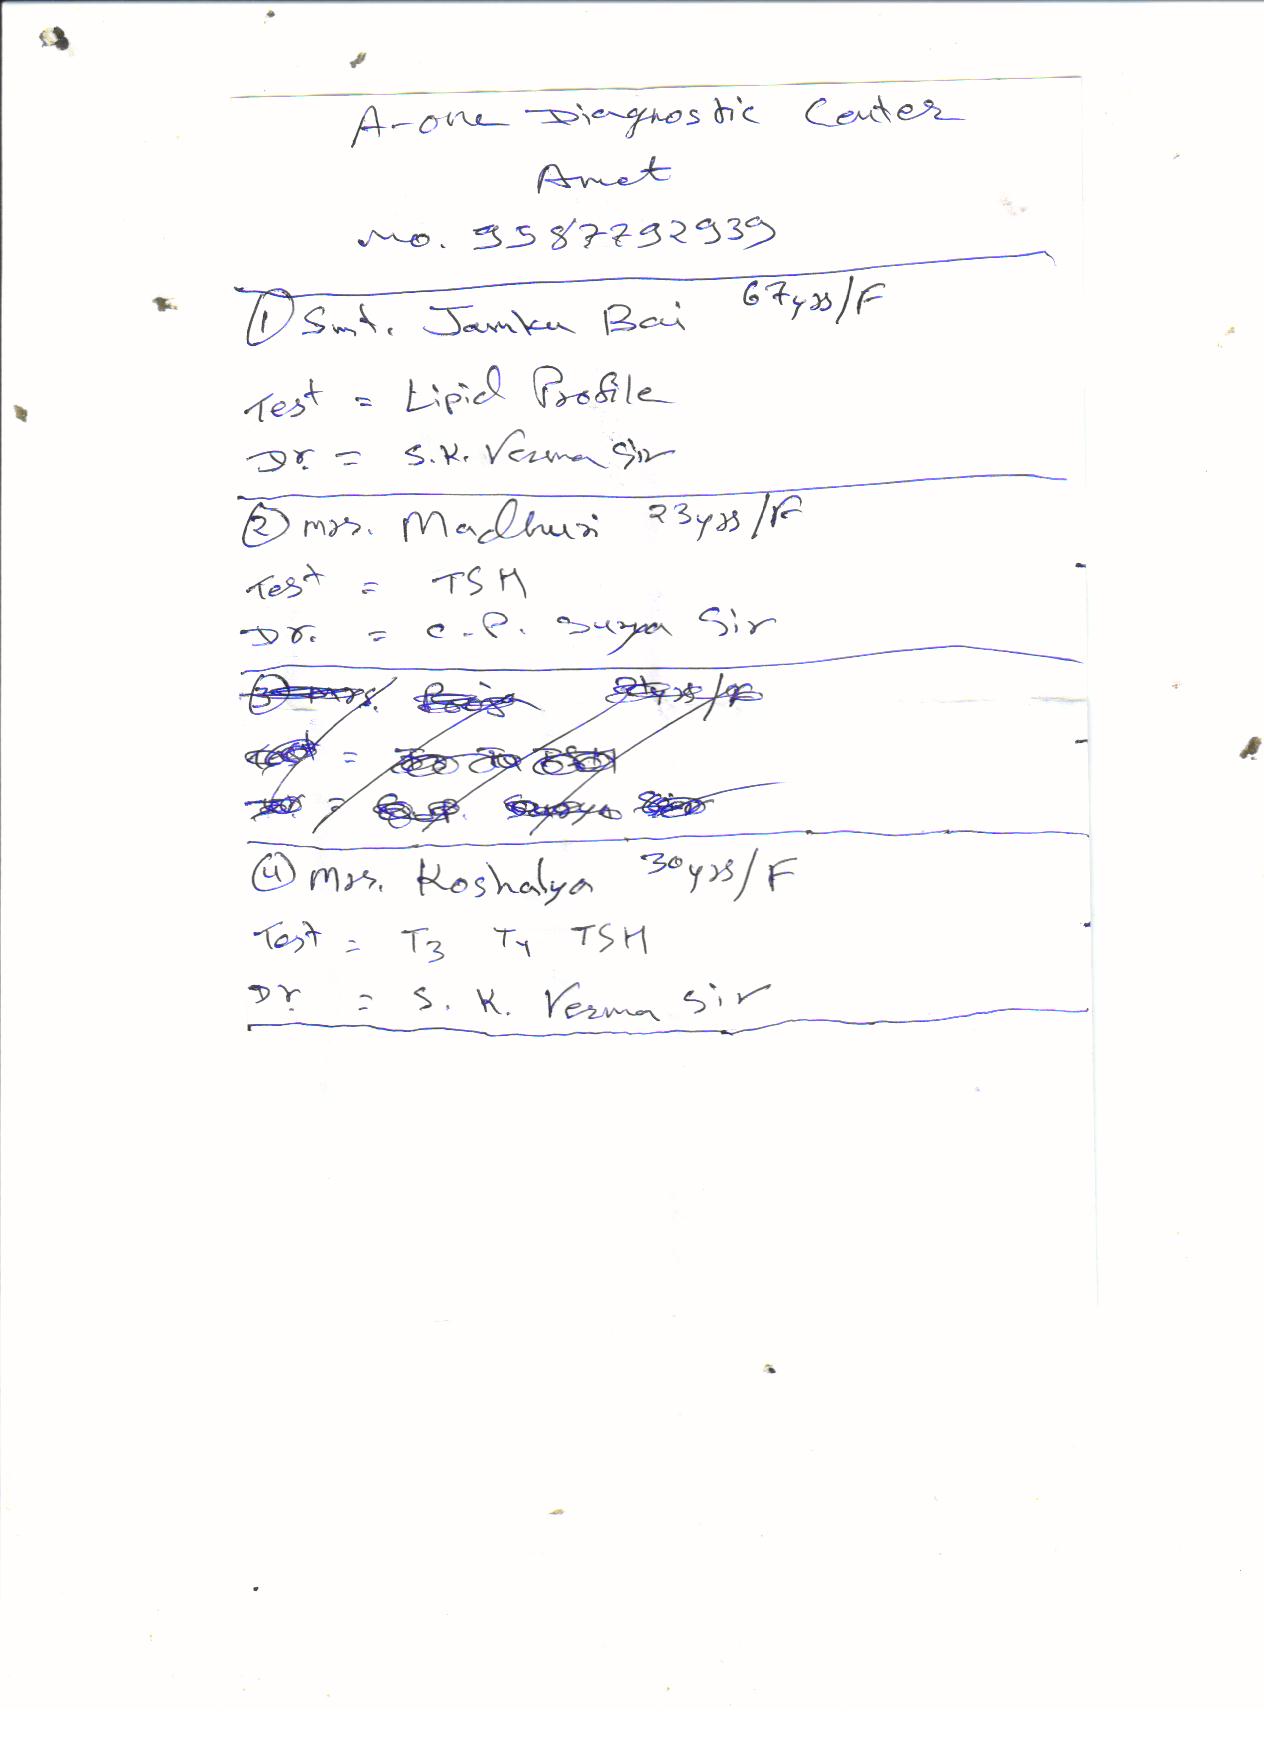 A-one Diagnostic Center
Amet
Mo. 9587792939
1 Smt. Jamku Bai 67yrs/F
Test = Lipid Profile
Dr. = S.K. Verma Sir
2 Mrs. Madhuri 23yrs/F
Test = TSH
Dr. = C.P. Surya Sir
3 Mrs.
4 Mrs. Koshalya 30yrs/F
Test = T3 T4 TSH
Dr. = S. K. Verma Sir